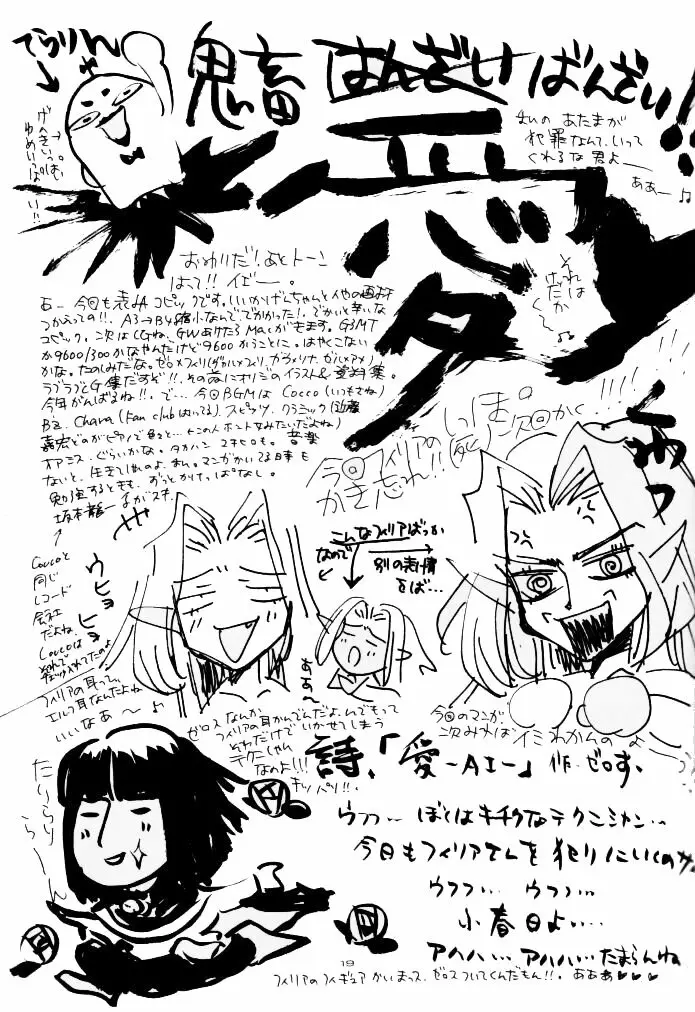 てらりん
鬼畜 はんざい ばんざい!!
げんきいっぱい
ゆめいっぱーい!!
まいの あたまが
犯罪なんて、いって
くれるな君よー
ああー♪
愛
これは
だれか
おゆりだ!あとトーン
はって!!イエー。
あー 今回も表みはコピックです。いいかげんちゃんと
つかえっての!! A3→B4縮小なんでででかかった!でかいと辛いな
コピック。次はCGね、GWあけたらMacがきます。G3MT
か9600/300かなやんだけど9600かうことに。はやくこない
かな。たのしみだな。ゼロ×フィリ
ラブラブとG集だすぞ!!その前にオリジのイラスト&
今年がんばるね!!で…今回BGMは Cocco(いつもさね)
B'z. Chara (Fan clubはいってる)スピッツ、クラシック
オアシス、ぐらいかな。タカハシ ユキヒロも。音楽
ないと、生きてれのよ、まし。マンガかいてる日事も
勉強するときも、ずっとかけっぱなし。
坂本龍一もがスキ。
↑
Coccoと
同じ
レコード
会社
だよね。
Coccoは
それで
今回フィリアのしっぽ
かき忘れ!!(死)次回かく!!
くわっ
ウヒョヒョ
こんなフィリアばっか
なので
別の表情
をば…
ああ〜
フィリアの耳って、
エルフ耳なんだよね
いいなあ〜♪
ゼロスなんか
フィリアの耳かんでんだよ。んでもって
それだけで いかせてしまう
テクニシャん
なのよ!!!
キッパリ!!
今回のマンガ
次みねばイミわかんのよ
詩、「愛-AI-」作.ゼロす、
たりらり
らーん
ウフフ… ぼくはキチクなテクニシャン…
今日もフィリアさんを 犯りにいくのさ
ウフフ… ウフフ…
小春日よ…
アハハ… アハハ…たまらんね
19
フィリアのフィギュア かいまっス、ゼロスついてくんだもん!!。あああ♥♥♥。